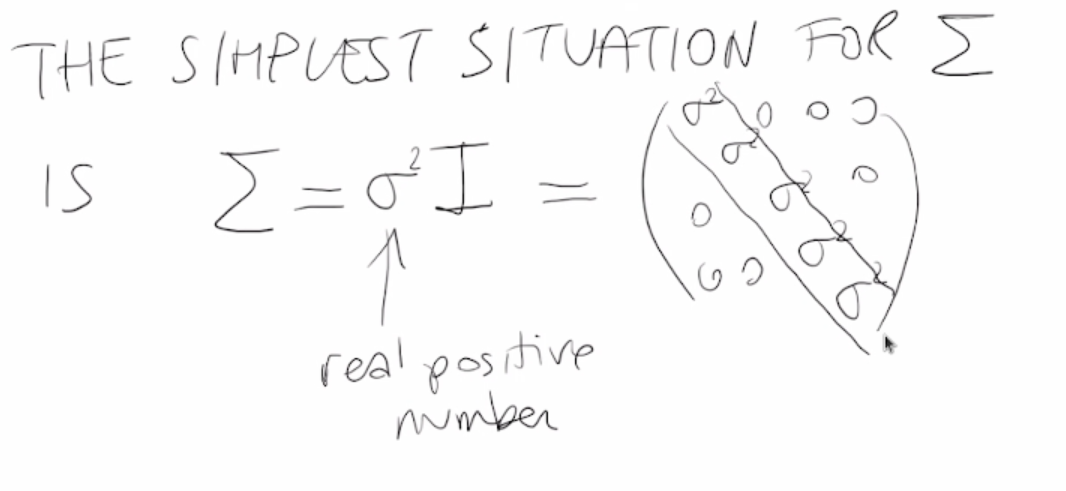 THE SIMPLEST SITUATION FOR Σ
IS Σ = σ² I = ( σ² 0 0 0
σ² 0
0 σ²
σ²
0 0 σ² )
real positive
number